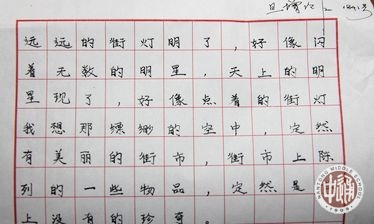 远远的街灯明了，好像闪
着无数的明星，天上的明
星现了，好像点着的街灯
我想那缥缈的空中，定然
有美丽的街市，街市上陈
列的一些物品，定然是
上没有的珍奇。
MIDDLE SCHOOL